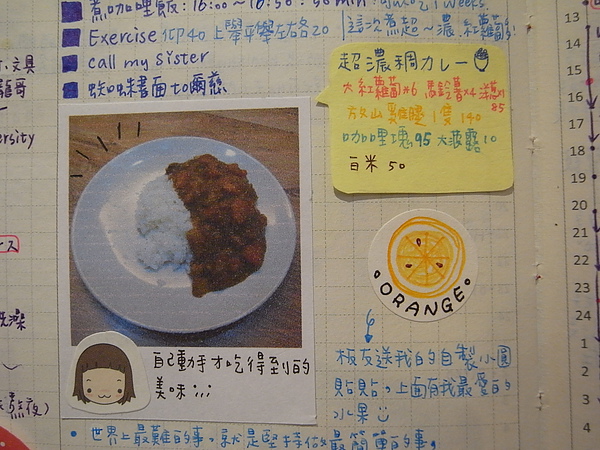 煮咖哩飯:16:00~16:50:50min
Exercise 仰臥40 上舉平舉左右各20
call my sister
蜘蛛書面to爾慈
文具
ersity
ース
這次煮超~濃
超濃稠カレー
大紅蘿蔔*6 馬鈴薯*4 洋蔥*1
85
放山雞腿1隻140
咖哩塊95 大菠露10
白米50
ORANGE
自己動手才吃得到的
美味;;;
板友送我的自製小圓
貼貼,上面有我最愛的
水果
世界上最難的事,就是堅持做最簡單的事。
13
14
15
16
17
18
19
20
21
22
23
24
1
2
3
4